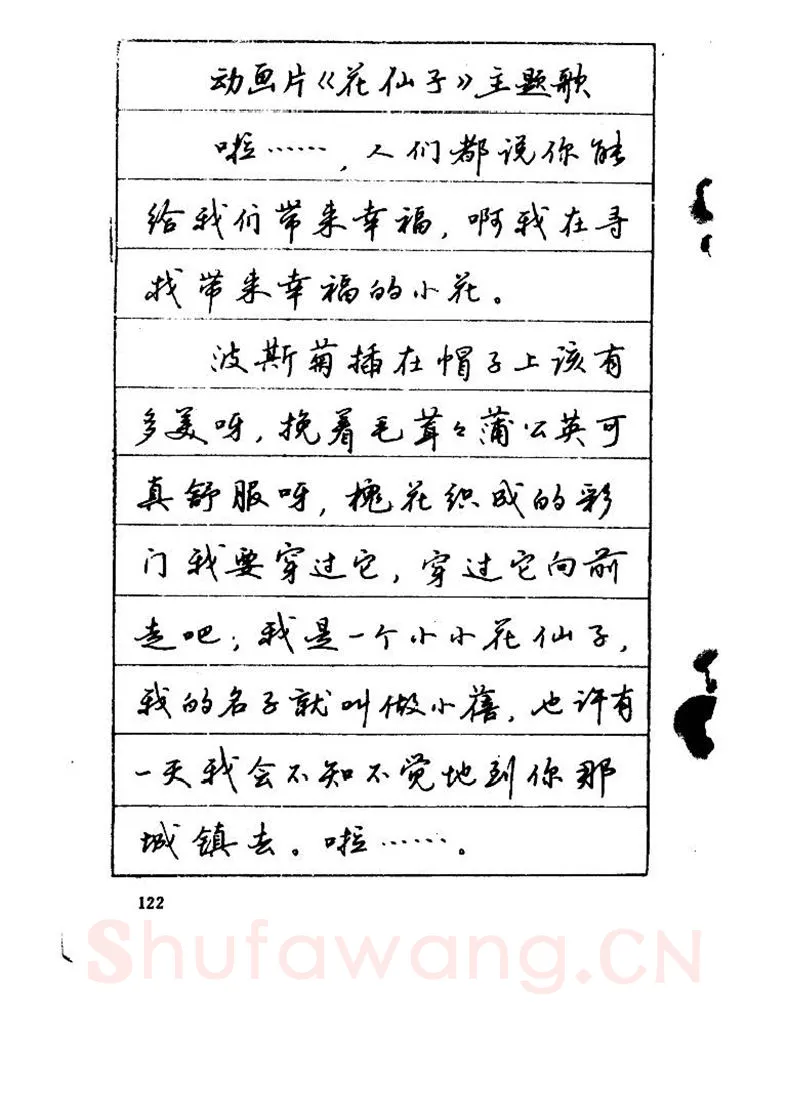 动画片《花仙子》主题歌
啦……，人们都说你能
给我们带来幸福，啊我在寻
找带来幸福的小花。
波斯菊插在帽子上该有
多美呀，挽着毛茸々蒲公英可
真舒服呀，槐花织成的彩
门我要穿过它，穿过它向前
走吧；我是一个小小花仙子，
我的名子就叫做小蓓，也许有
一天我会不知不觉地到你那
城镇去。啦……。
122
Shufawang.CN